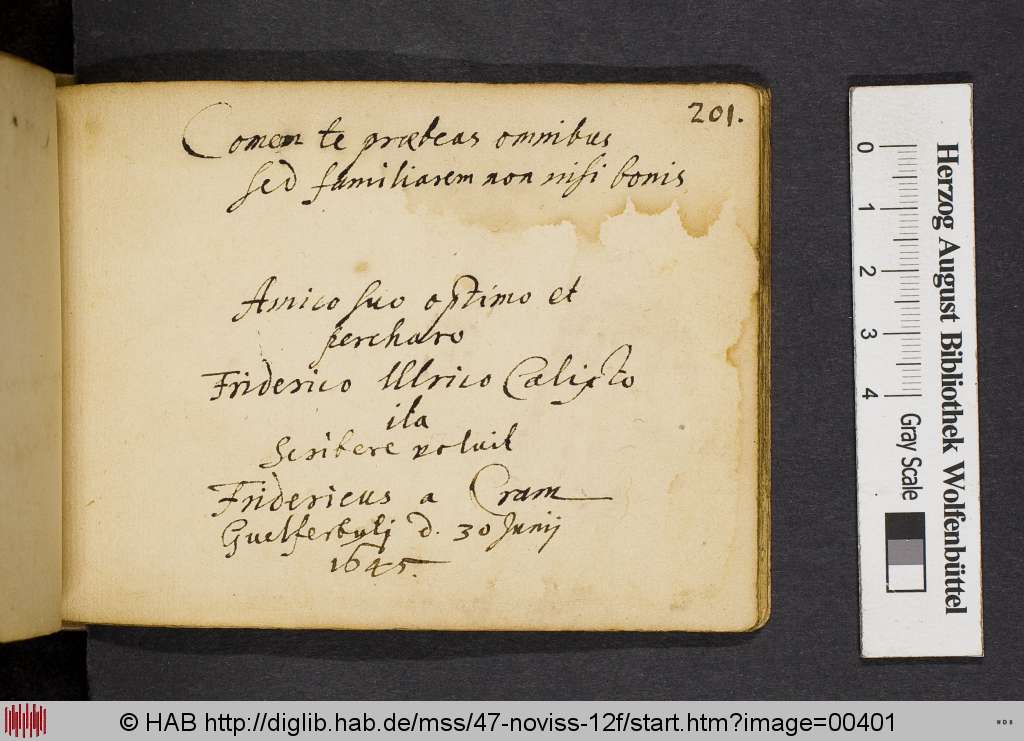 201.
Comem te præbeas omnibus
sed familiarem non nisi bonis
Amico suo optimo et
percharo
Friderico Ulrico Calixto
ita
Scribere voluit
Fridericus a Cram
Guelferbytj d. 30 Junij
1645.
0 1 2 3 4
Gray Scale
Herzog August Bibliothek Wolfenbüttel
© HAB http://diglib.hab.de/mss/47-noviss-12f/start.htm?image=00401
WDB